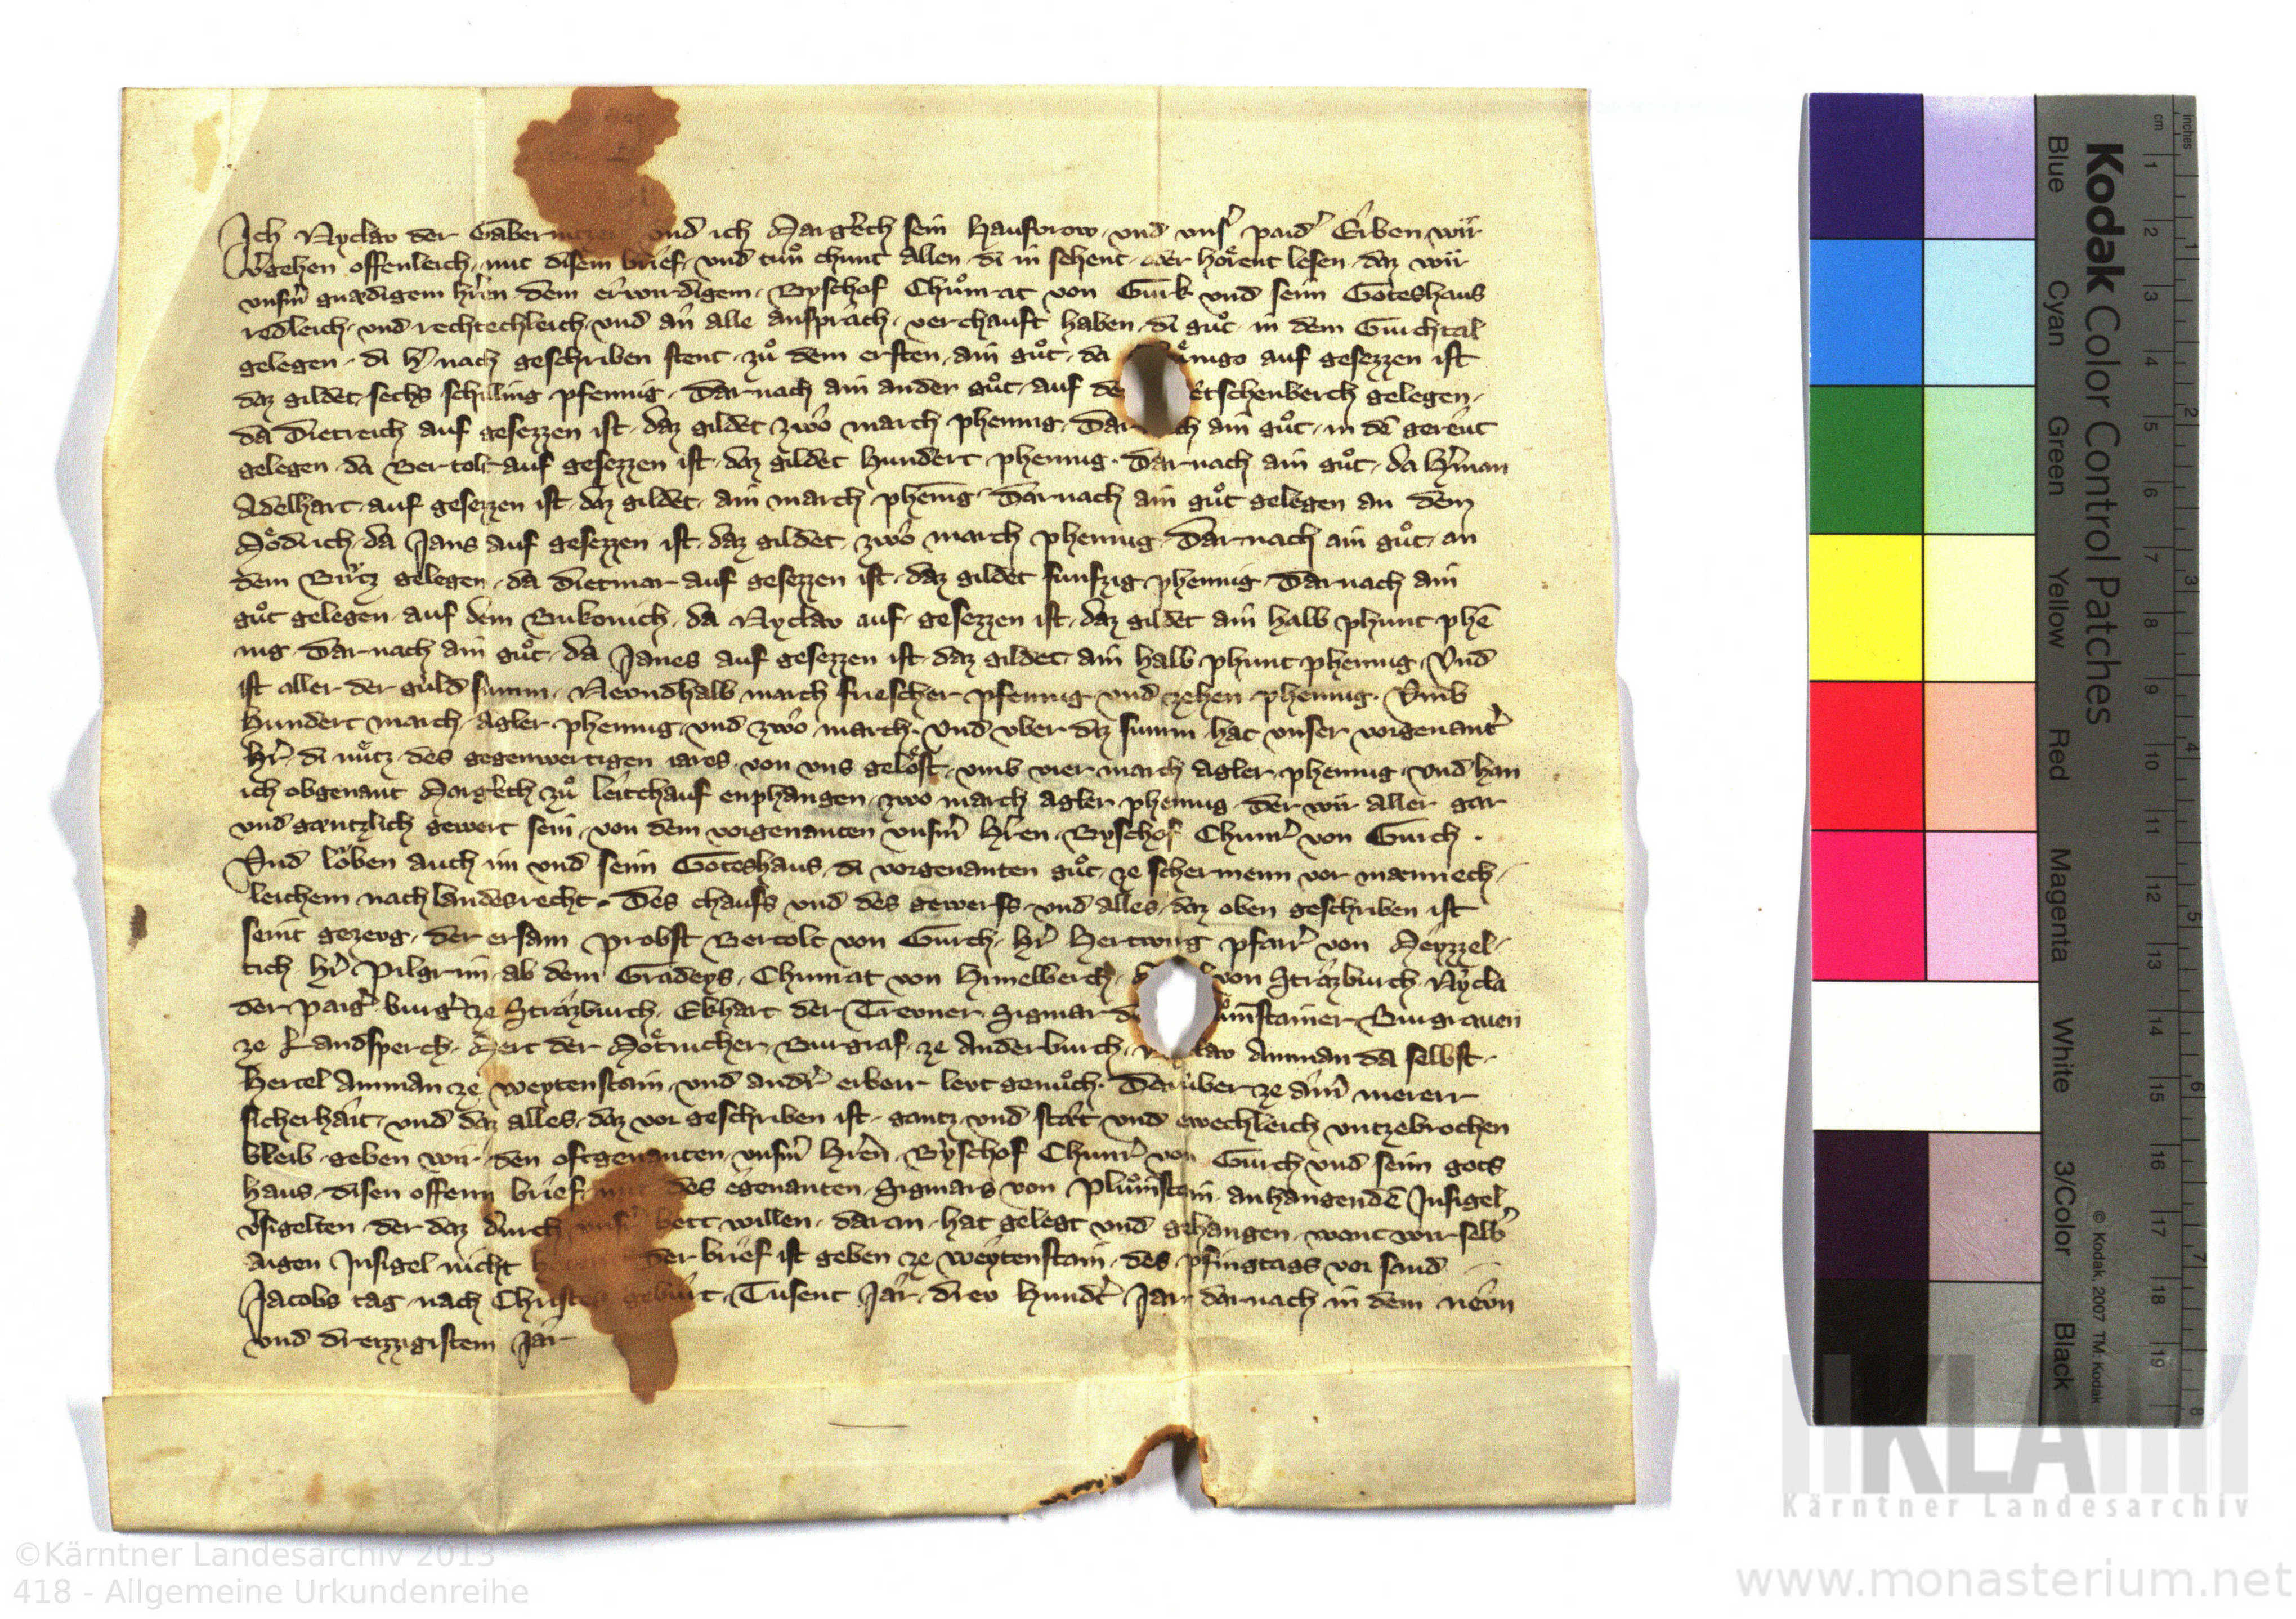 Ich Nyclav der Gabernitzer vnd ich Margrech sein Hausvrow, vnd vnsr paidr Erben, wir
vrgehen offenleich, mit disem brief, vnd tuͦn chunt allen, di in sehent, oder hoͤrent lesen, daz wir
vnsrm gnædigem hrren dem erwirdigem, Byschof Chuͦnrat von Gurk vnd seim Goteshaus
redleich, vnd rechtechleich, vnd an alle ansprach, verchauft haben, di guͦt, in dem Gurchtal
gelegen, di hr nach geschriben stent, zuͦ dem ersten, ain guͦt, da auf gesezzen ist
daz gildet, sechs schilling pfennig, Darnach ain ander guͦt, auf de etschenberch gelegen,
da Dietreich auf gesezzen ist, daz gildet zwo march phennig, Dar ch ain guͦt, in dē gereut
gelegen, da Bertolt auf gesezzen ist, daz gildet hundert phennig, Darnach ain guͦt, da Hrman
Adelhart, auf gesezzen ist, daz gildet, ain march phenīg, Darnach ain guͦt gelegen an dem
Moͤdrich, da Jans auf gesezzen ist, daz gildet, zwo march phennig, Darnach ain guͦt, an
dem Buͤrtz gelegen, da Dietmar auf gesezzen ist, daz gildet funfzig phennig, Darnach ain
guͦt gelegen, auf dem Bukonich, da Nyclav auf gesezzen ist, daz gildet ain halb phunt phē
nig, Darnach ain guͦt, da Janes auf gesezzen ist, daz gildet, ain halb phunt phennig, Vnd
ist aller der guld summ, Nevndhalb march friescher pfennig, vnd zehen phennig, Vmb
hundert march, Agler phennig, vnd zwo march, Vnd vber daz summ, hat vnser vorgenantr
hr̄, di nuͤtz, des gegenwertigen iares, von vns geloͤst, vmb vier march agler phennig, Vnd han
ich obgenant Margrech zuͦ leitchauf enphangen, zwo march agler phennig, Der wir aller gar
vnd gæntzlich gewert sein, von dem vorgenanten vnsrm hrren, Byschof Chunr̄ von Gurch.
Vnd loben auch im vnd seim Goteshaus, di vorgenanten guͦt, ze schermenn vor mænnech,
leichem nach landesrecht, Des chaufs vnd des gewerfs, vnd alles, daz oben geschriben ist
seint gezevg, der ersam Probst Bertolt von Gurch, Hr̄ Hertwig pfarrr von Meyzzel,
tich hr̄ Pilgrim, ab dem Gradeys, Chunrat von Himelberch, von Strazburch, Nycla
der paigr burgr ze Strazburch, Ekhart der Trevner, Sigmar d mstainer Burgraven
ze Landsperch, Mert der Moͤtnicher, Burgraf, ze Anderburch, lav Amman da selbst,
Hertel Amman ze weytenstain, vnd andr erberr levt genuͦch. Daruber ze ainr merern
sicherhait, vnd daz alles, daz vor geschriben ist, gantz, vnd stæt vnd ewechleich vntzebrochen
bleib, geben wir den oftgenanten vnsrm hrren, Byschof Chunr̄ von Gurch vnd seim gots
haus, disen offenn brief, mit des egenanten, Sigmars von Pluͤmstain, anhangendē Insigel,
vrsigelten, der daz durch vnsr bett willen, daran, hat gelegt vnd gehangen, want wir selb
aigen Insigel nicht haben, Der brief ist geben ze weytenstain, des pfingtags vor sand
Jacobs tag, nach Christes geburt, Tusent Jar, drev Hundrt Jar, darnach in dem nevn
vnd dreizzigistem Jar
Kodak Color Control Patches
Blue Cyan Green Yellow Red Magenta White 3/Color Black
© Kodak, 2007 TM: Kodak
cm 1 2 3 4 5 6 7 8 9 10 11 12 13 14 15 16 17 18 19
inches 1 2 3 4 5 6 7 8
KLA
Kärntner Landesarchiv
©Kärntner Landesarchiv 2013
418 - Allgemeine Urkundenreihe
www.monasterium.net